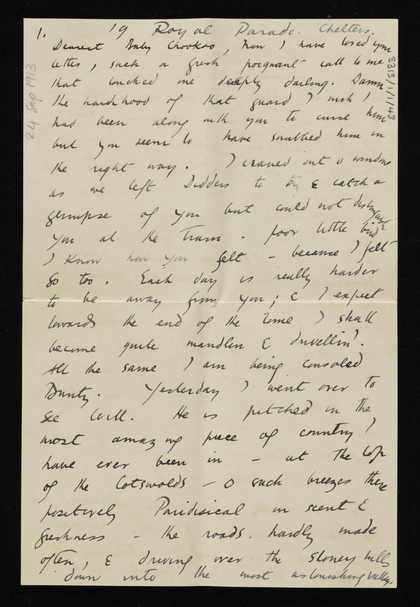 1. 19 Royal Parade. Chelters.
Dearest Baby Chookoo, Now I have loved your
letter, such a fresh poignant call to me
that touched me deeply darling. Damn
the hardihood of that guard I wish I
had been along with you to curse him
but you seem to have snubbed him in
the right way. I craned out o window
as we left Didders to try & catch a
glimpse of you but could not distinguish
you at the Train. poor little bird
I know how you felt - because I felt
so too. Each day is really harder
to be away from you; & I expect
towards the end of the time I shall
become quite maudlin & drivellin'.
All the same I am being consoled
Bunty. Yesterday I went over to
see Will. He is pitched in the
most amazing piece of country I
have ever been in - at the top
of the Cotswolds - O such breezes there
positively Paridisical in scent &
freshness - the roads hardly made
often, & driving over the stoney hills
down into the most astounishing valleys
24 Sep 1913
8313/1/1/43